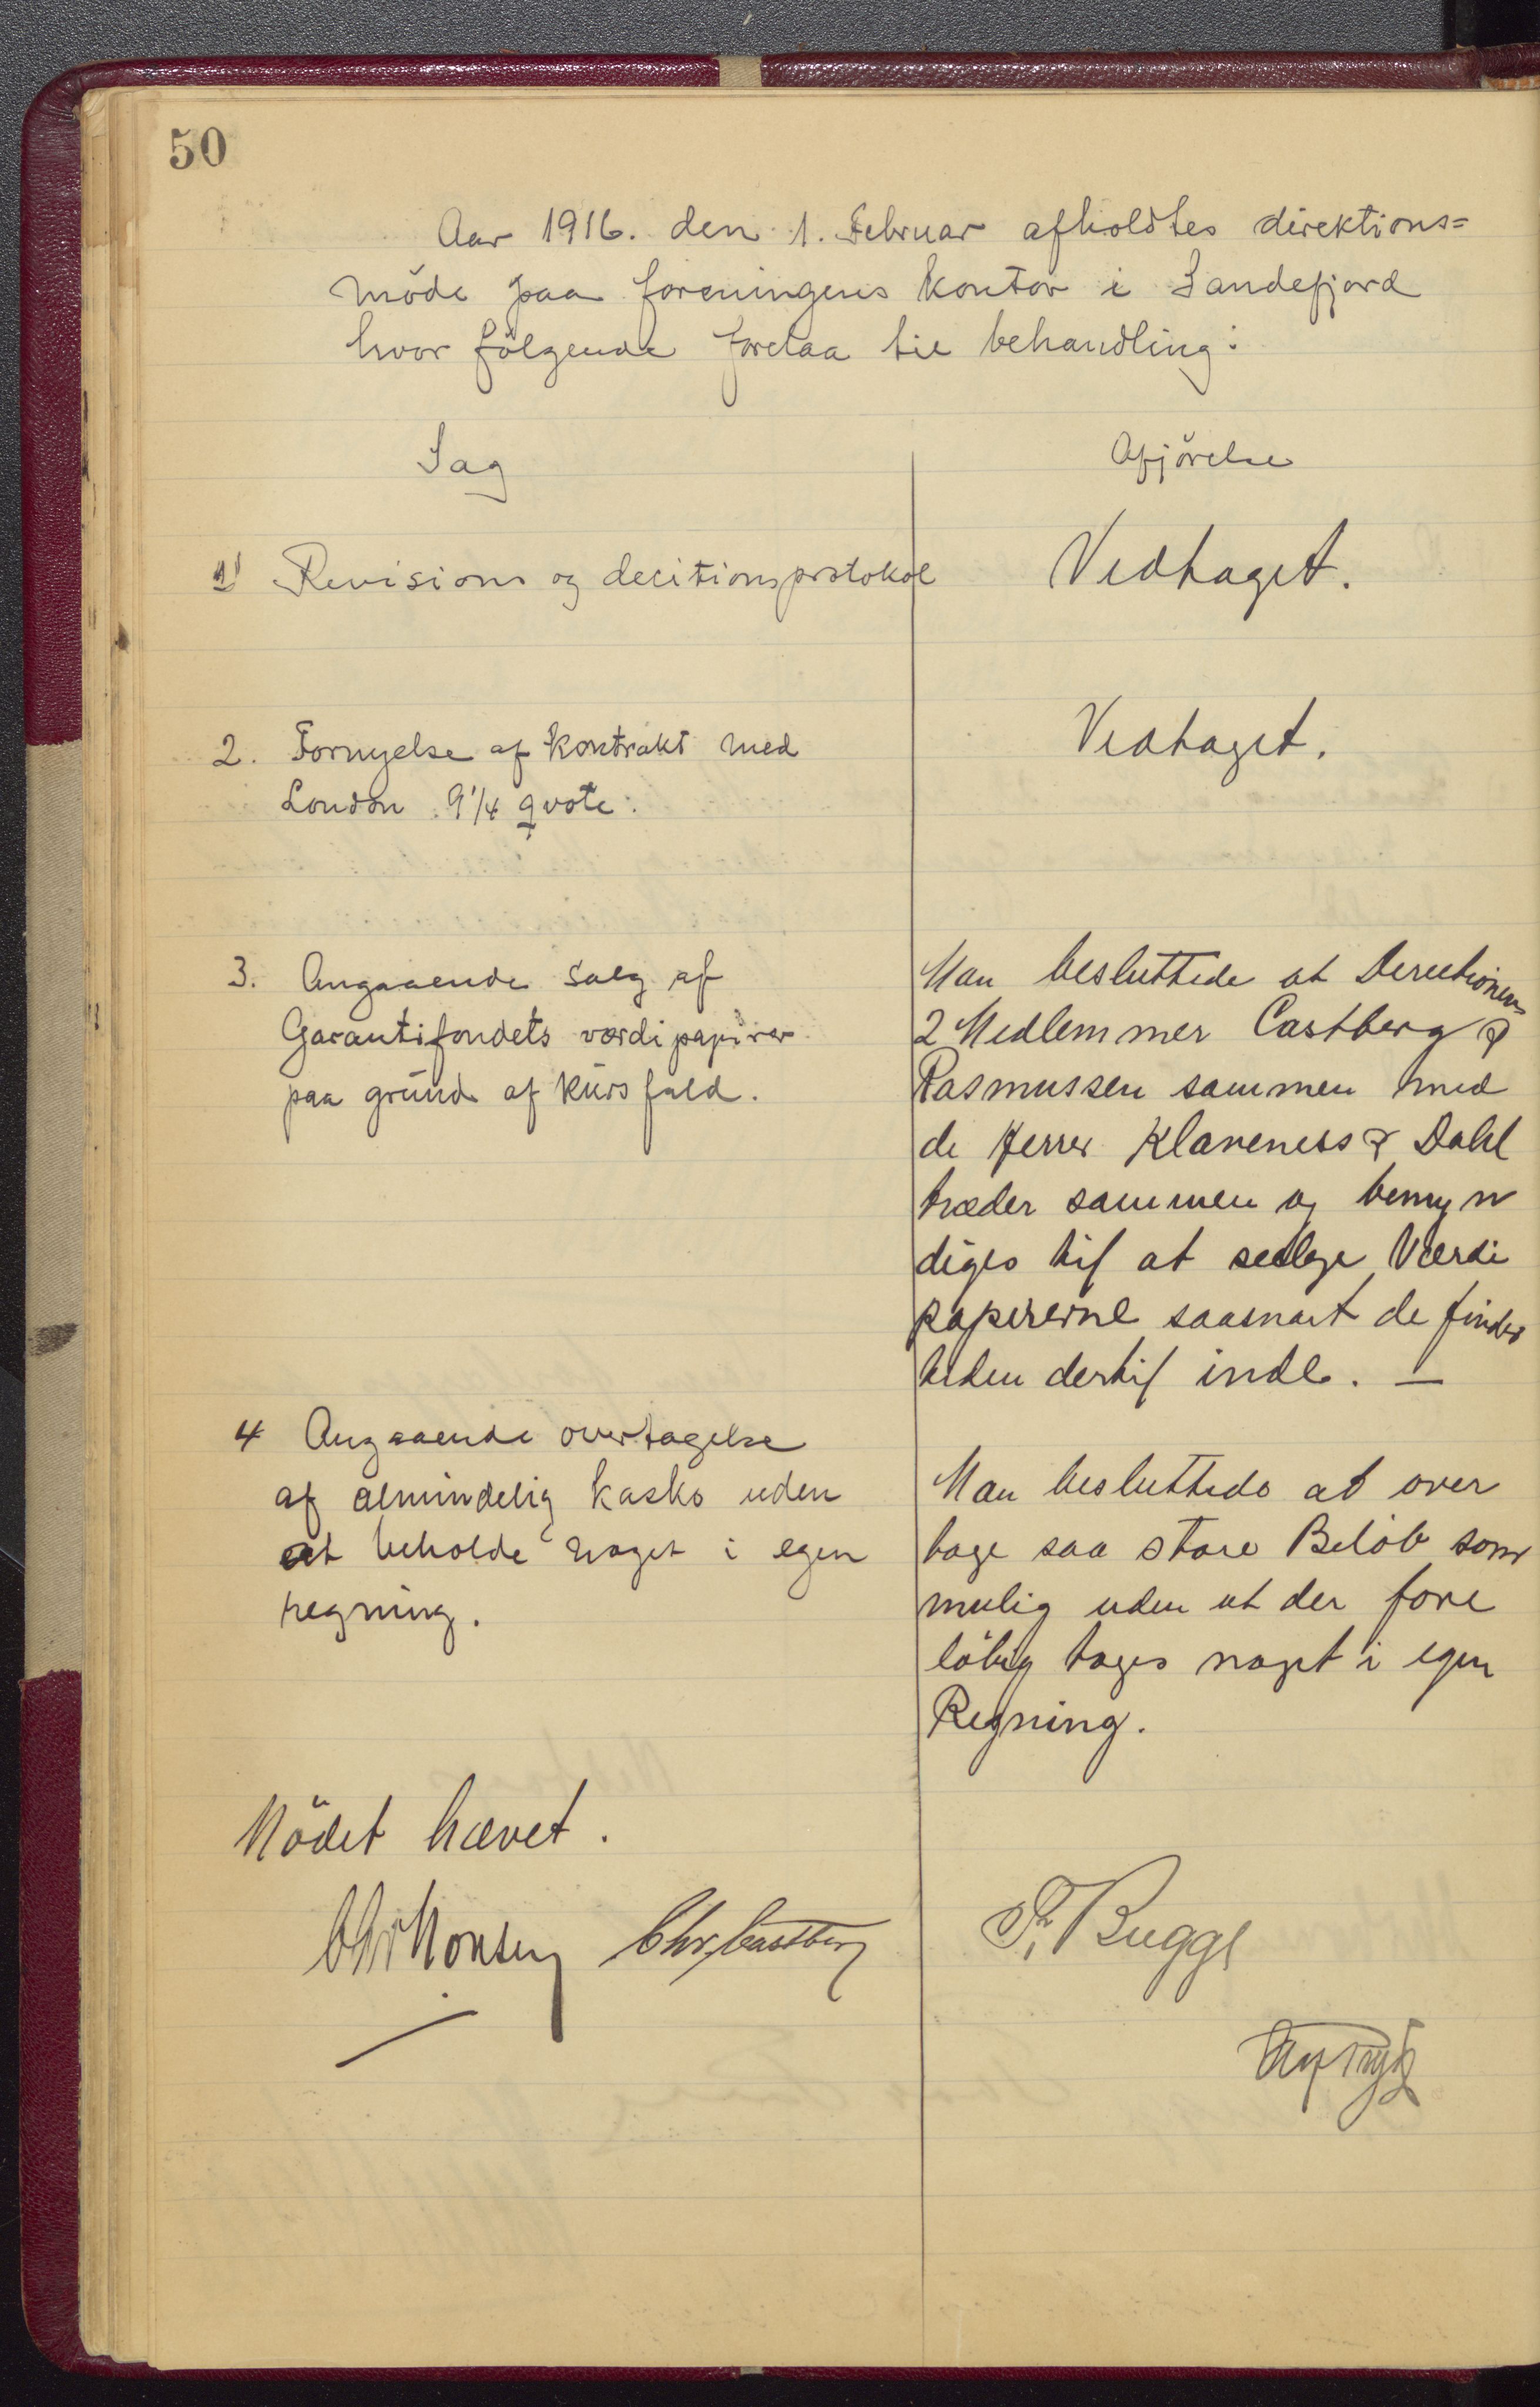 50
Aar 1916. den 1. Februar afholdtes direktions=
möde paa foreningens kontor i Sandefjord
hvor fölgende forelaa til behandling:
Sag
Afjörelse
1) Revisions og decitionsprotokol
Vedtaget.
2. Fornyelse af kontrakt med
London 9 1/4 qvote.
Vedtaget.
3. Angaaende salg af
Garantifondets værdipapirer
paa grund af kursfald.
Man besluttede at Derectionens
2 Medlemmer Castberg &
Rasmussen sammen med
de Herrer Klaveness & Dahl
træder sammen og bemyn
diges til at sælge Værdi
papirerne saasnart de finder
tiden dertil inde. —
4 Angaaende overtagelse
af almindelig kasko uden
at beholde noget i egen
regning.
Man besluttede at over
tage saa store Beløb som
mulig uden at der fore
löbig tages noget i egen
Regning.
Mödet hævet.
Chr Monsen Chr. Castberg
Fr. Bugge